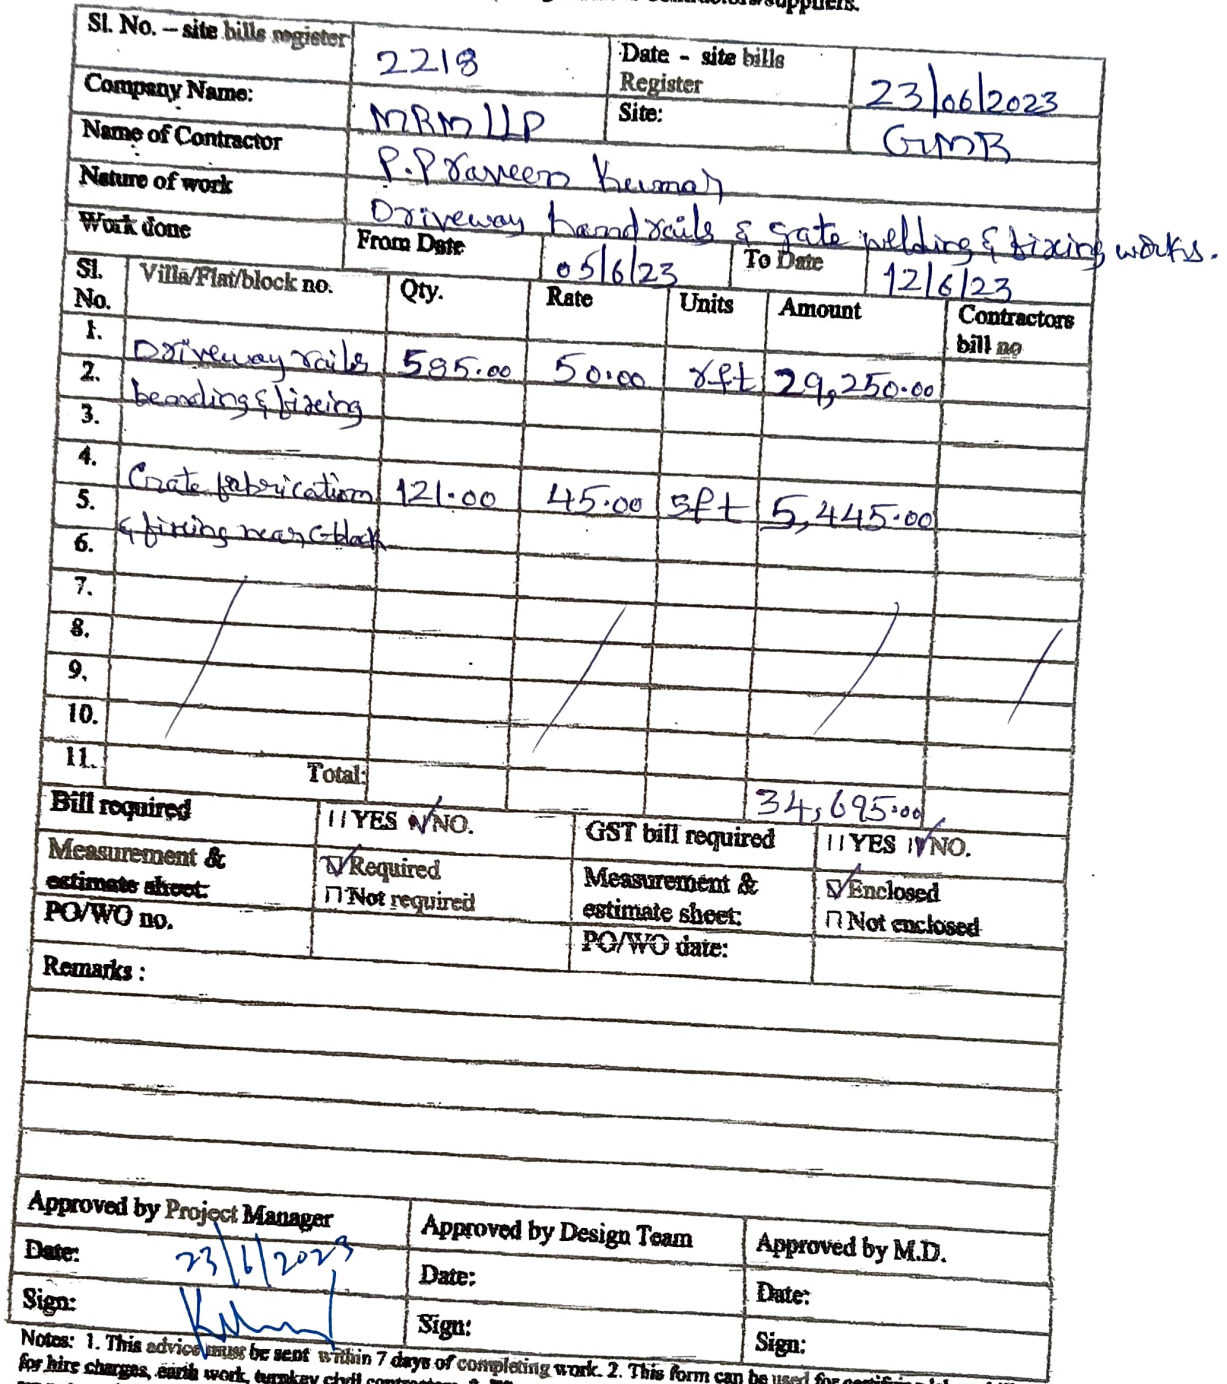 Contractors/suppliers.
Sl. No. – site bills register 2218 Date - site bills Register 23/06/2023
Company Name: MRM LLP Site: GMR
Name of Contractor P. Praveen Kumar
Nature of work Driveway handrails & gate welding & fixing works.
Work done From Date 05/6/23 To Date 12/6/23
Sl. No. Villa/Flat/block no. Qty. Rate Units Amount Contractors bill no
1.
Driveway rails 585.00 50.00 rft 29,250.00
2.
bending & fixing
3.
4.
Gate fabrication 121.00 45.00 sft 5,445.00
5.
& fixing near C-block
6.
7.
8.
9.
10.
11. Total: 34,695.00
Bill required YES NO. GST bill required YES NO.
Measurement & estimate sheet: Required Not required Measurement & estimate sheet: Enclosed Not enclosed
PO/WO no. PO/WO date:
Remarks :
Approved by Project Manager Approved by Design Team Approved by M.D.
Date: 23/6/2023 Date: Date:
Sign: Sign: Sign:
Notes: 1. This advice must be sent within 7 days of completing work. 2. This form can be used for certifying
for hire charges, earth work, turnkey civil